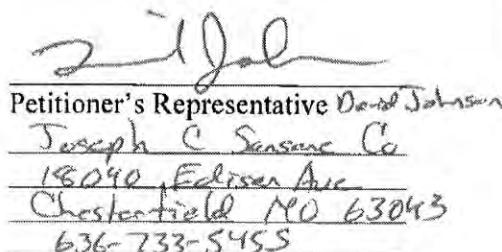 David Johnson
Petitioner's Representative David Johnson
Joseph C Sansone Co
18040 Edison Ave
Chesterfield MO 63043
636-733-5455